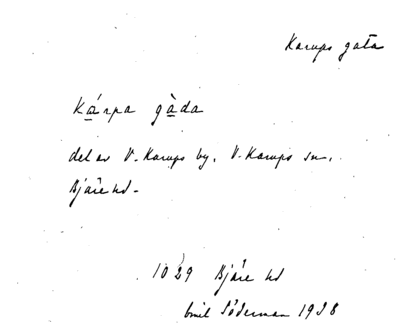 Karups gata
Kárpa gàda
del av V. Karups by, V. Karups sn,
Bjäre hd.
1029 Bjäre hd
Emil Söderman 1938